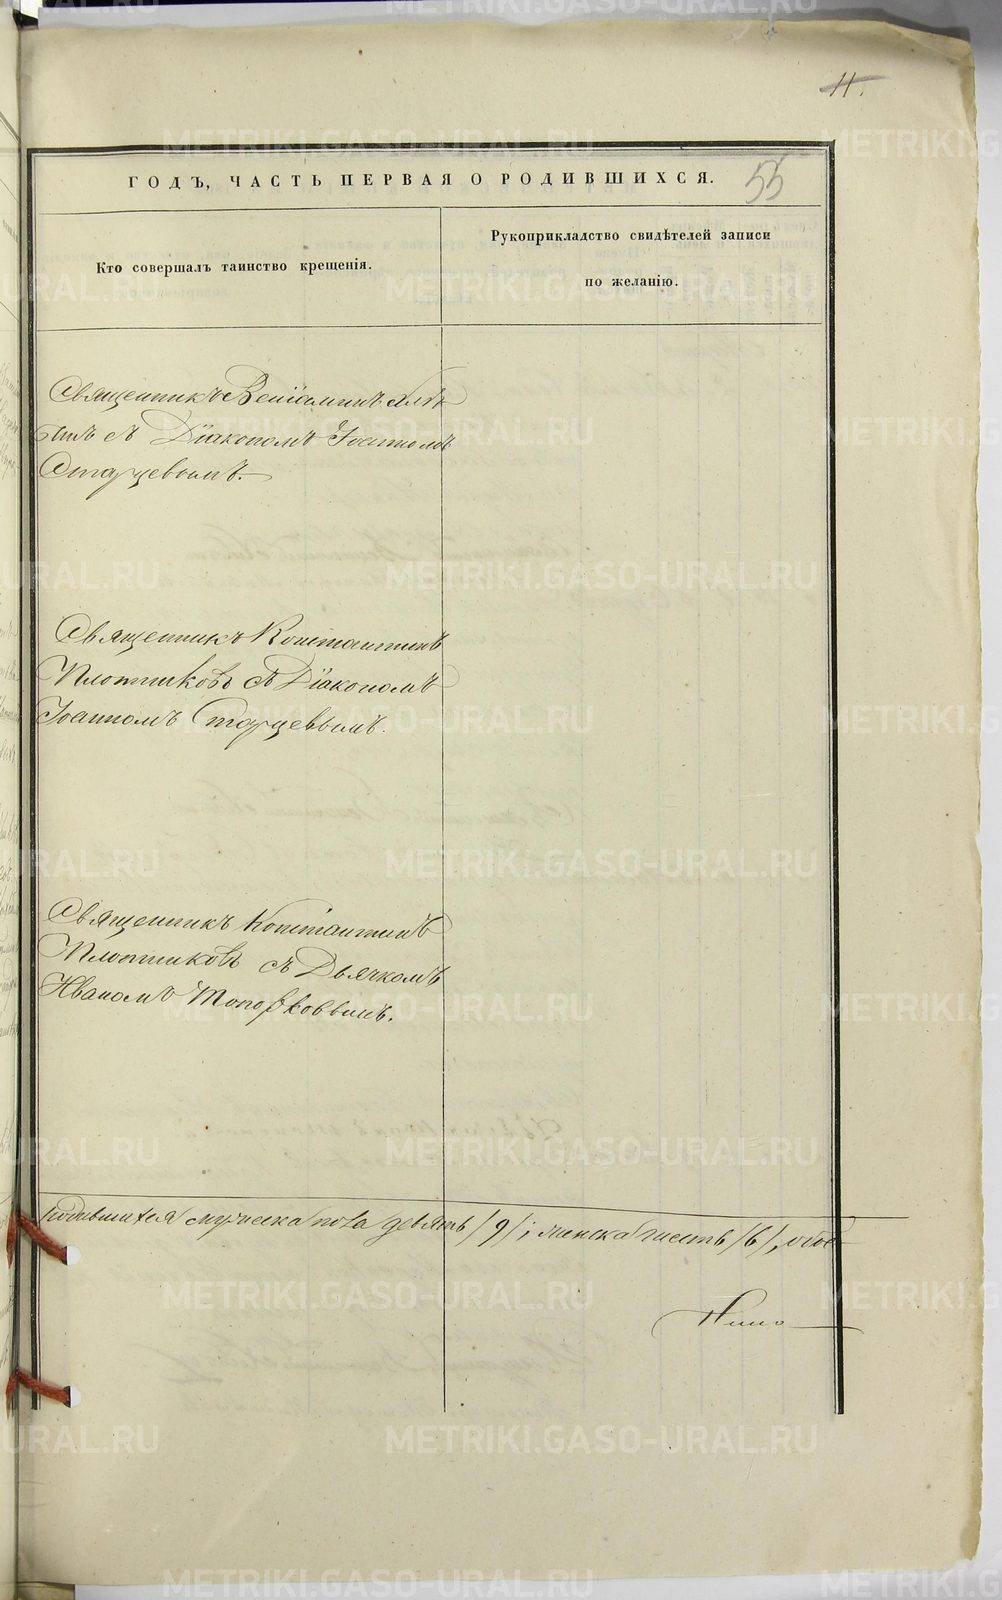 11.
ГОДЪ, ЧАСТЬ ПЕРВАЯ О РОДИВШИХСЯ.
55
Кто совершалъ таинство крещенія.
Рукоприкладство свидѣтелей записи
по желанію.
Священникъ Веніаминъ
съ Діакономъ Іоанномъ
Старцевымъ.
Священникъ Константинъ
Плотниковъ съ Діакономъ
Іоанномъ Старцевымъ.
Священникъ Константинъ
Плотниковъ съ Дьячкомъ
Иваномъ Топорковымъ.
Родившихся мужеска пола девять /9/; женска шесть /6/, обое
METRIKI.GASO-URAL.RU